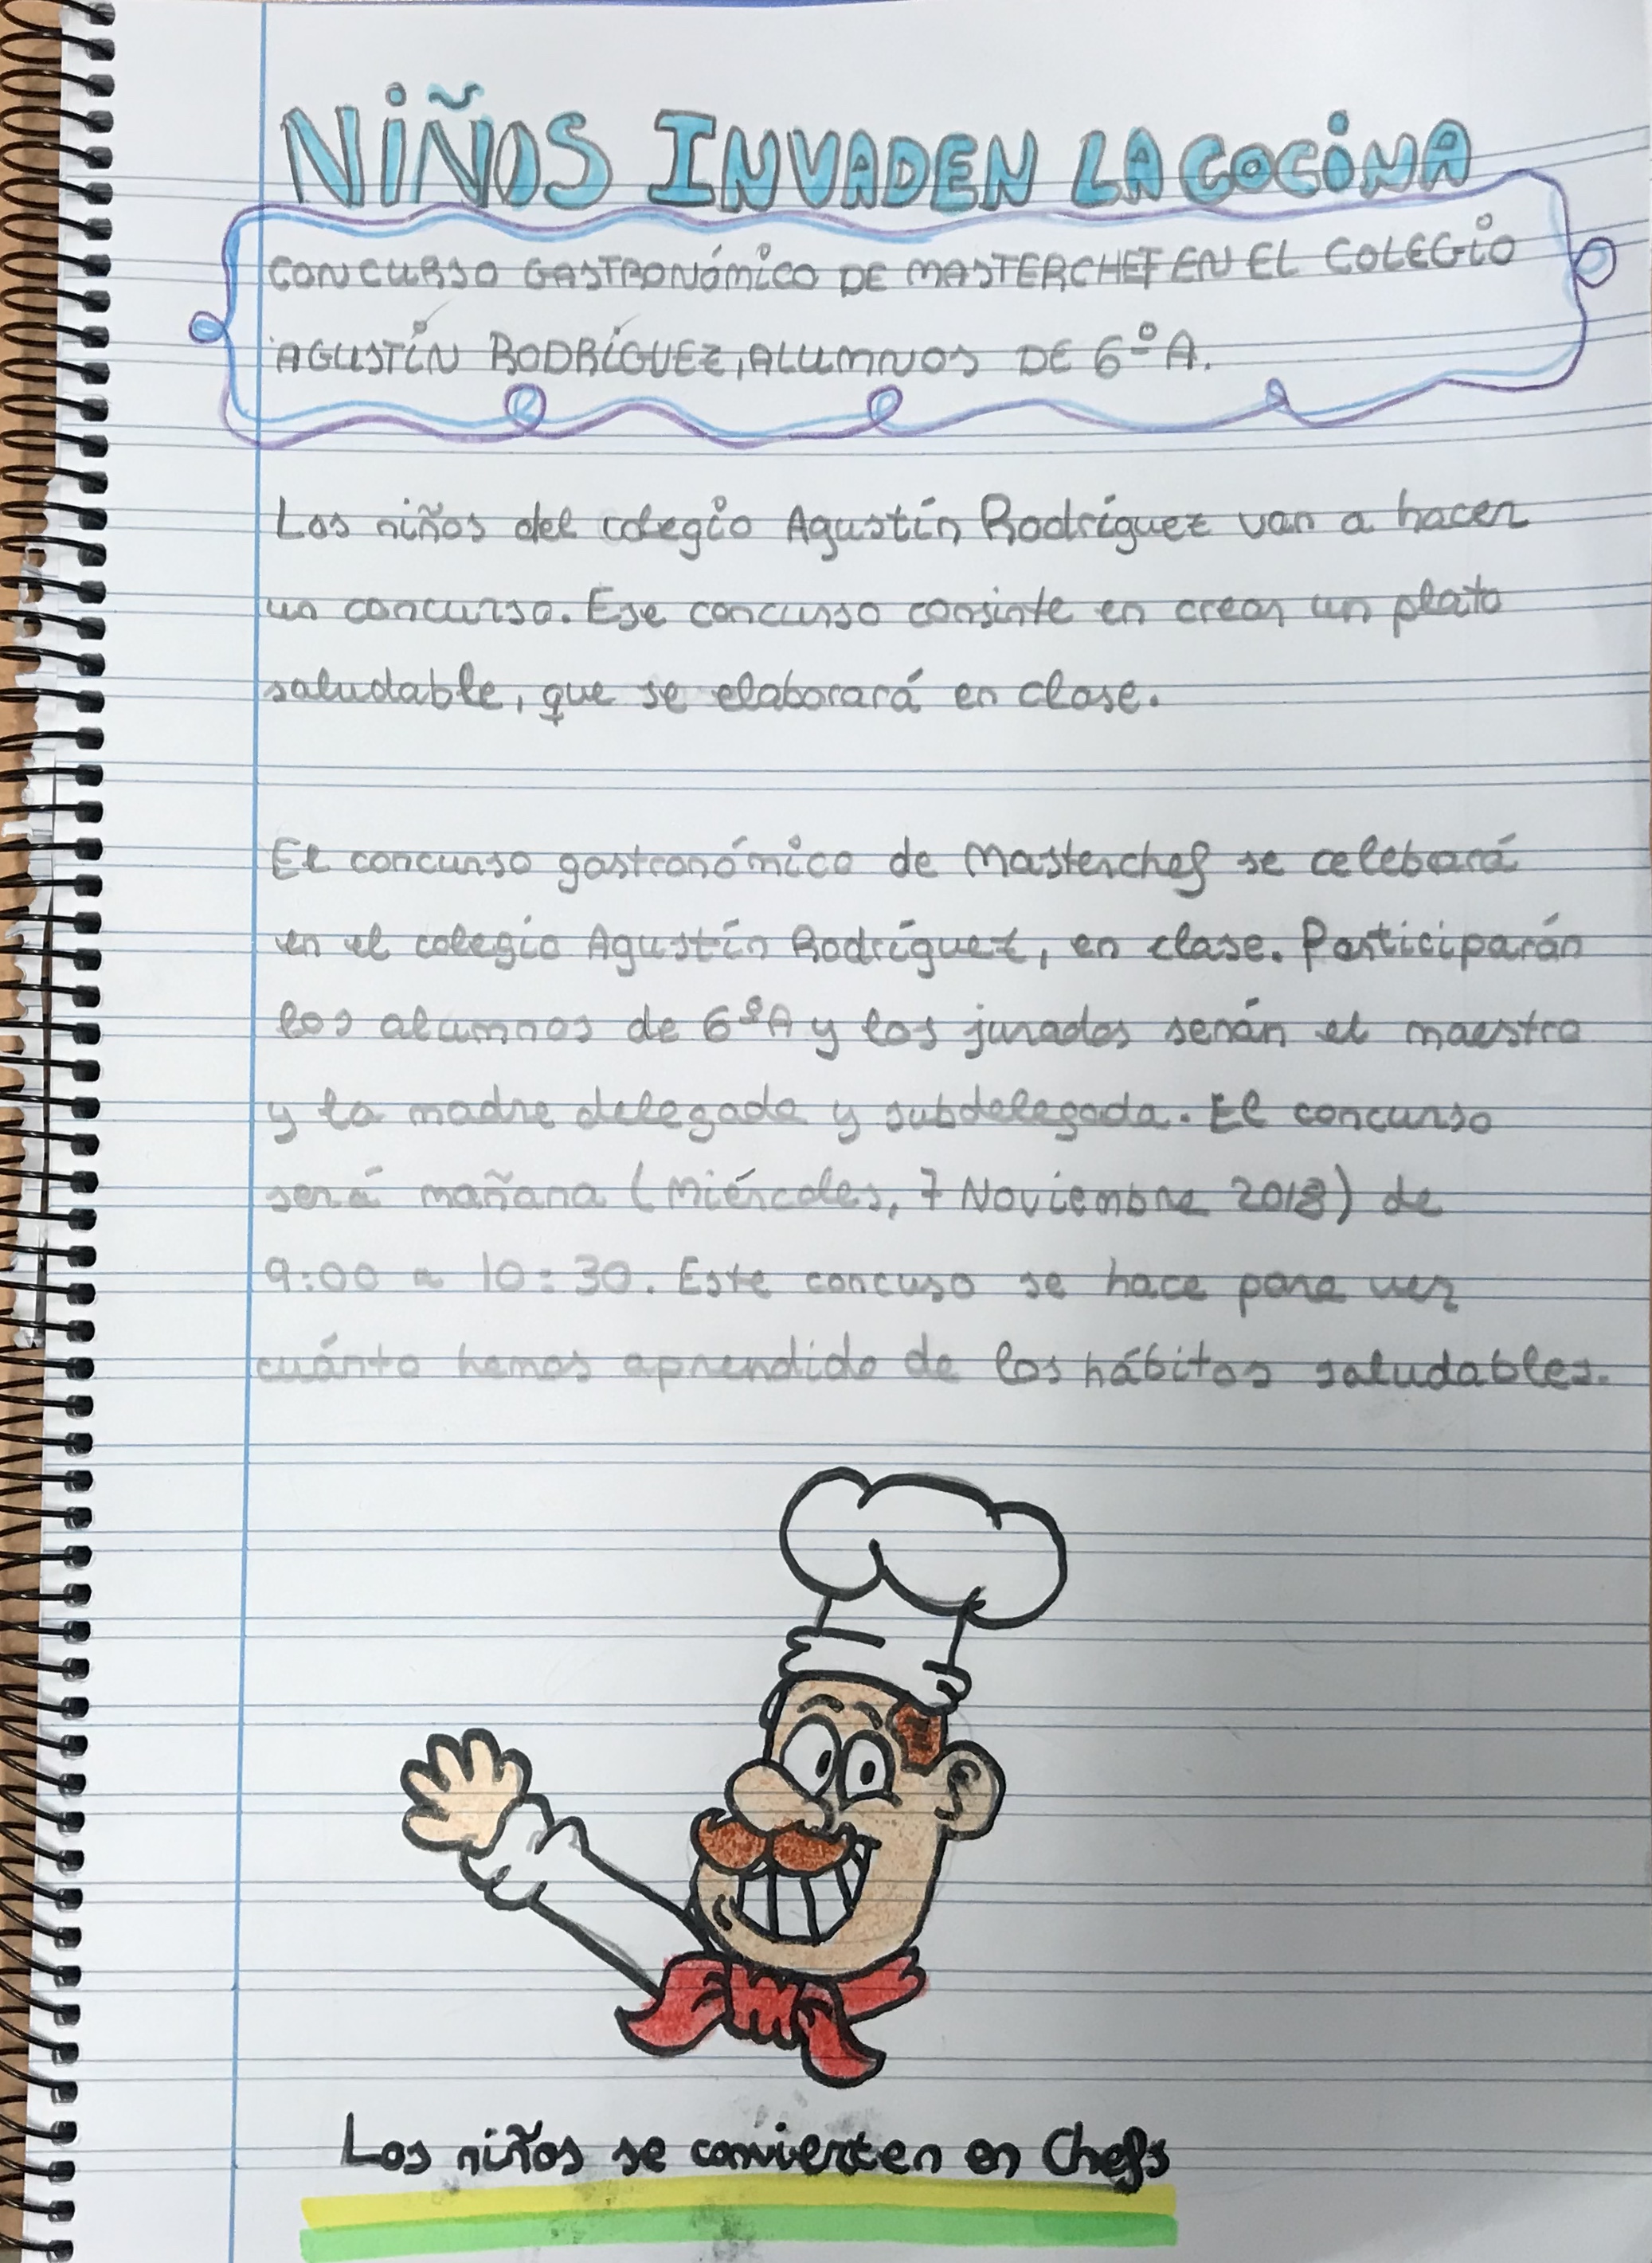 NIÑOS INVADEN LA COCINA
CONCURSO GASTRONÓMICO DE MASTERCHEF EN EL COLEGIO
AGUSTÍN RODRÍGUEZ, ALUMNOS DE 6º A.
Los niños del colegio Agustín Rodríguez van a hacer
un concurso. Ese concurso consinte en crear un plato
saludable, que se elaborará en clase.
El concurso gastronómico de Masterchef se celebará
en el colegio Agustín Rodríguez, en clase. Participarán
los alumnos de 6ºA y los jurados serán el maestro
y la madre delegada y subdelegada. El concurso
será mañana (Miércoles, 7 Noviembre 2018) de
9:00 a 10:30. Este concuso se hace para ver
cuánto hemos aprendido de los hábitos saludables.
Los niños se convierten en Chefs